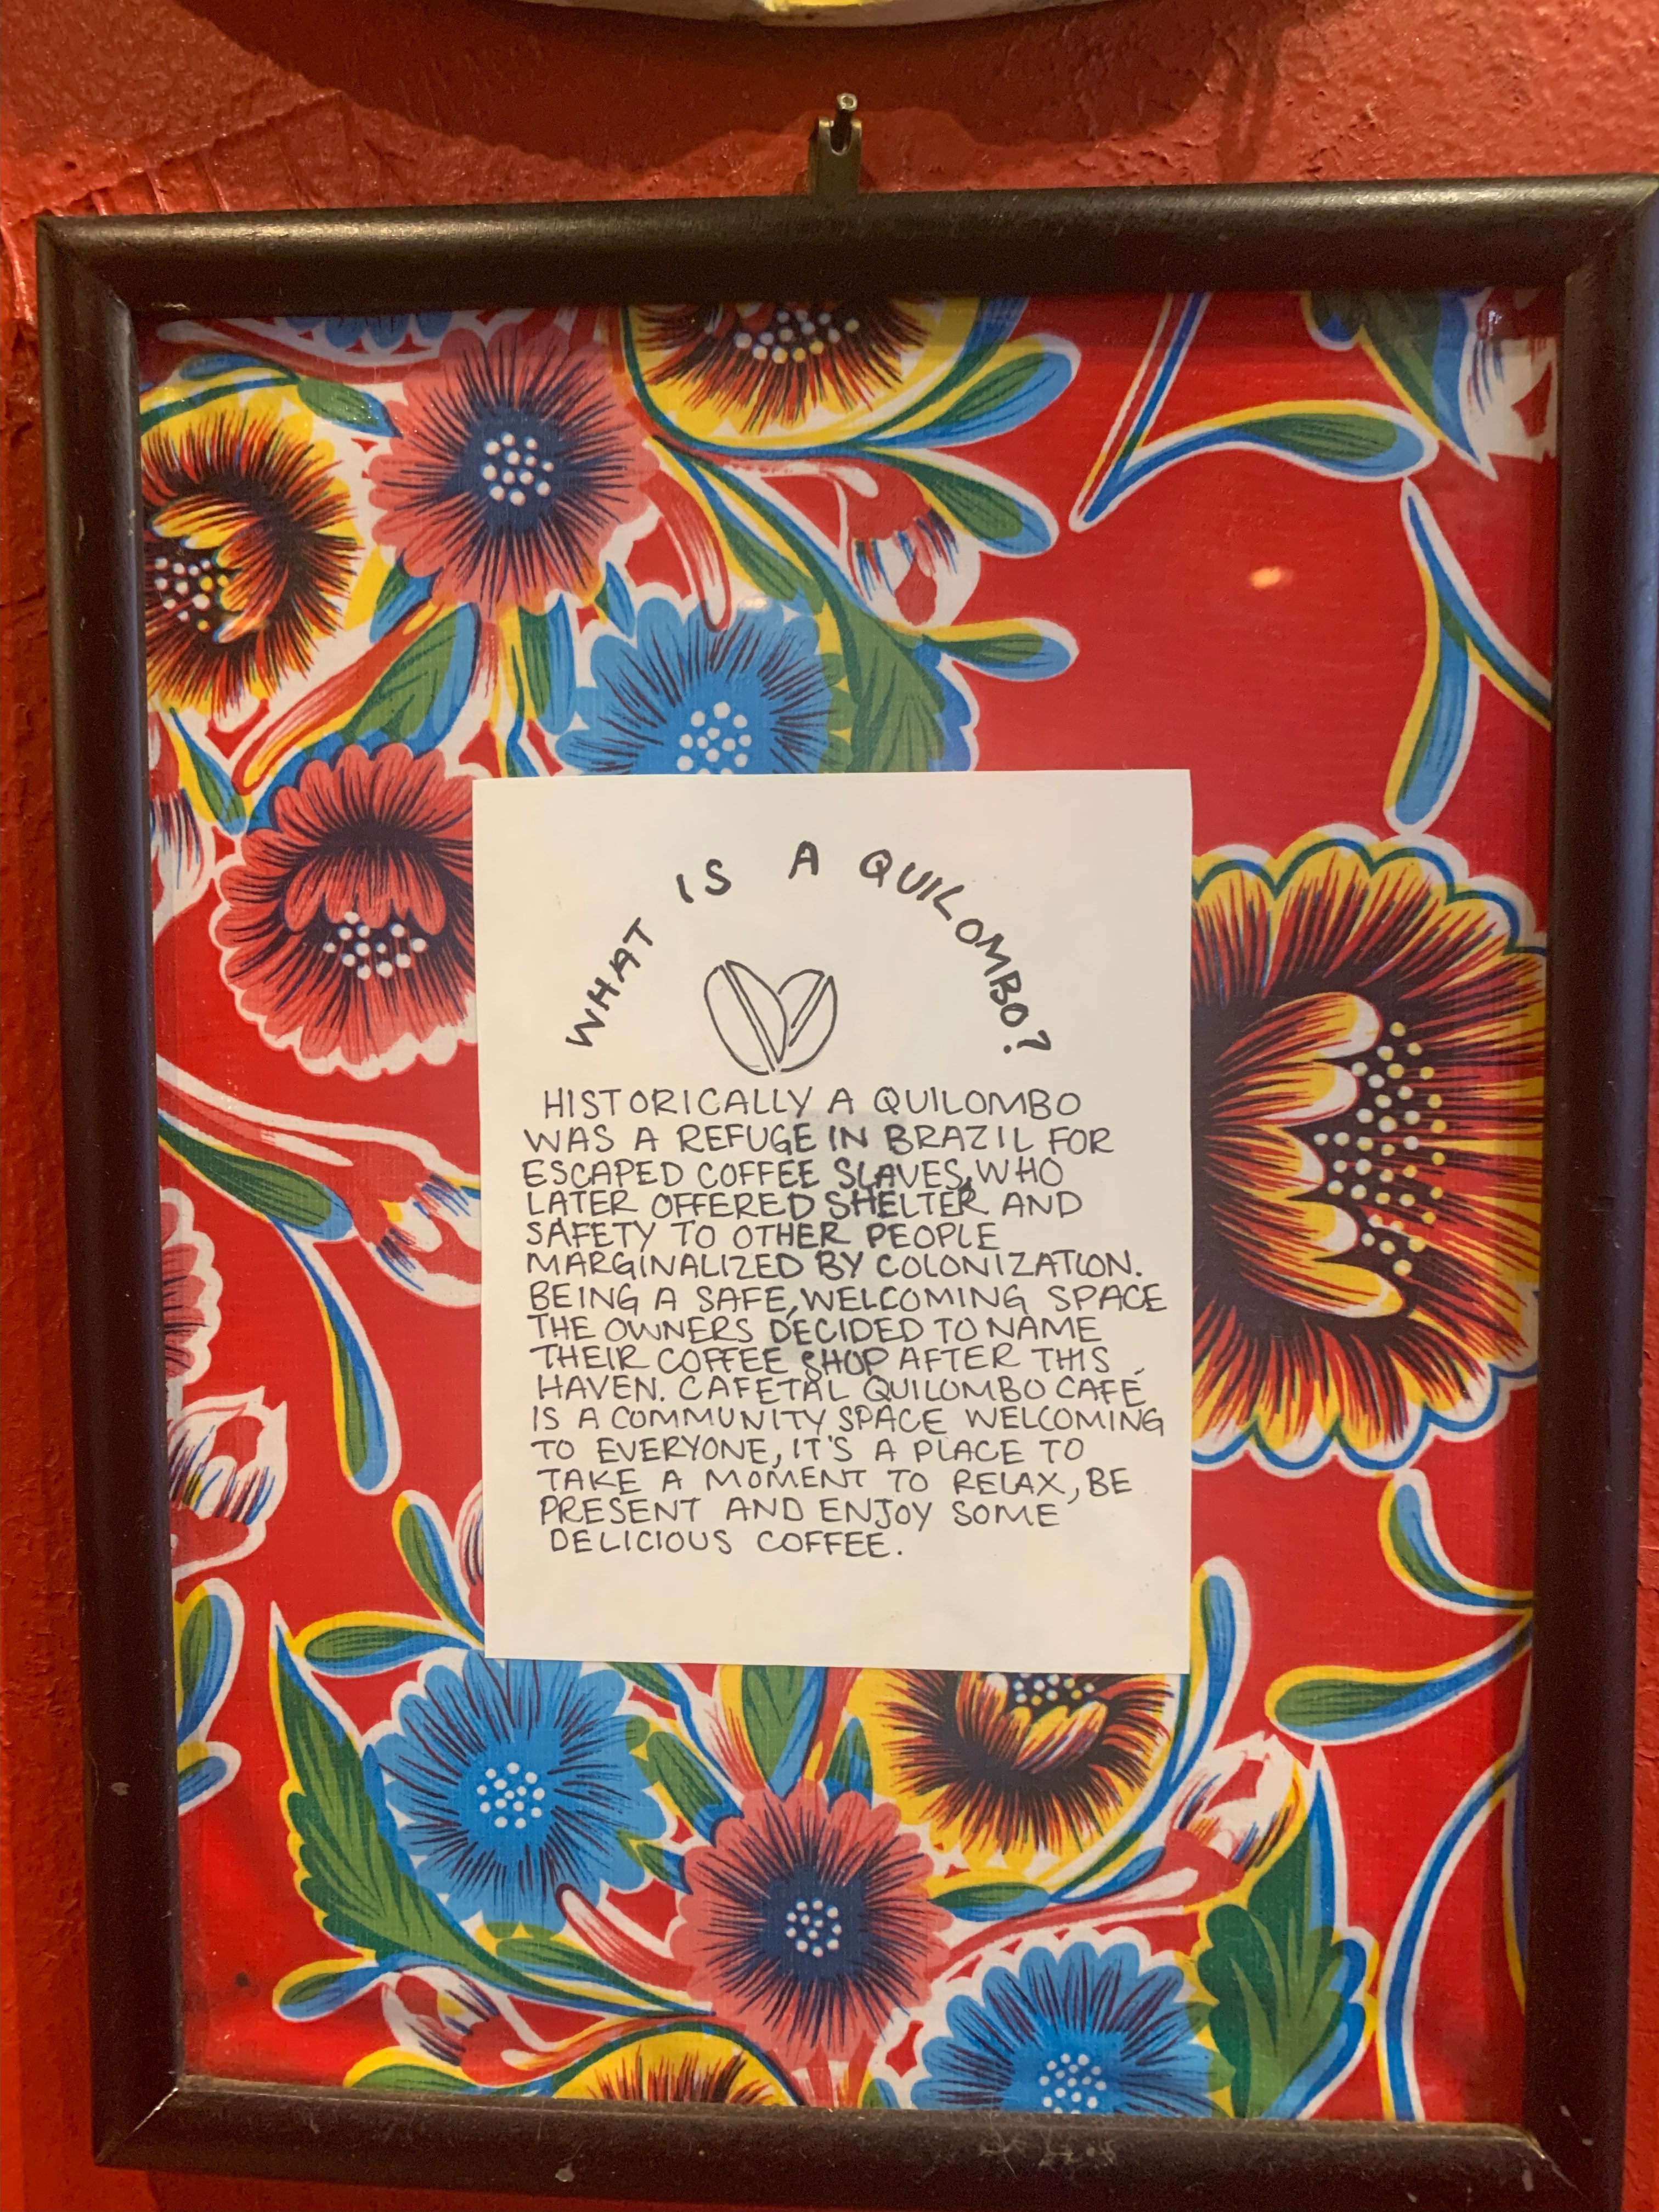 WHAT IS A QUILOMBO?
HISTORICALLY A QUILOMBO
WAS A REFUGE IN BRAZIL FOR
ESCAPED COFFEE SLAVES, WHO
LATER OFFERED SHELTER AND
SAFETY TO OTHER PEOPLE
MARGINALIZED BY COLONIZATION.
BEING A SAFE, WELCOMING SPACE
THE OWNERS DECIDED TO NAME
THEIR COFFEE SHOP AFTER THIS
HAVEN. CAFETAL QUILOMBO CAFÉ
IS A COMMUNITY SPACE WELCOMING
TO EVERYONE, IT'S A PLACE TO
TAKE A MOMENT TO RELAX, BE
PRESENT AND ENJOY SOME
DELICIOUS COFFEE.